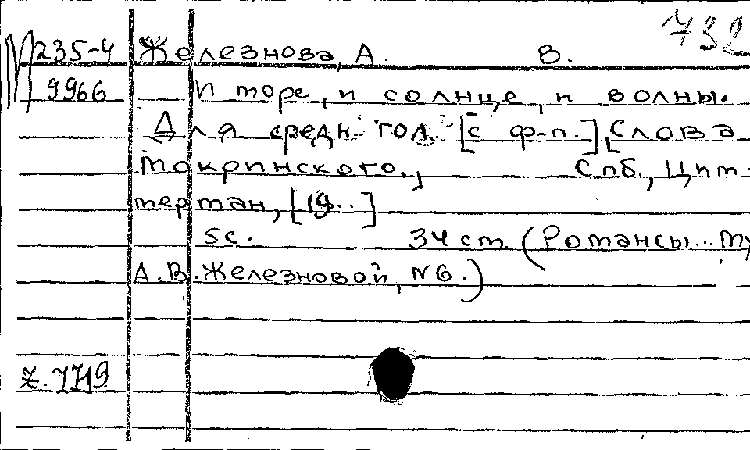 732
М 235-4 Железнова, А. В.
9966 И море, и солнце, и волны.
Для средн. гол. [с ф-п.], Слова
Мокринского., Спб., Цим-
мерман, [19..]
5с. 34 см. (Романсы.. Му
А.В. Железновой, №6.)
Z. 7719